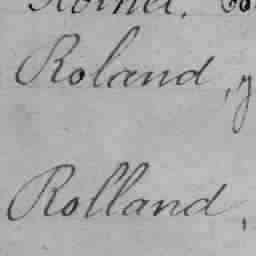 Roland, y
Rolland,